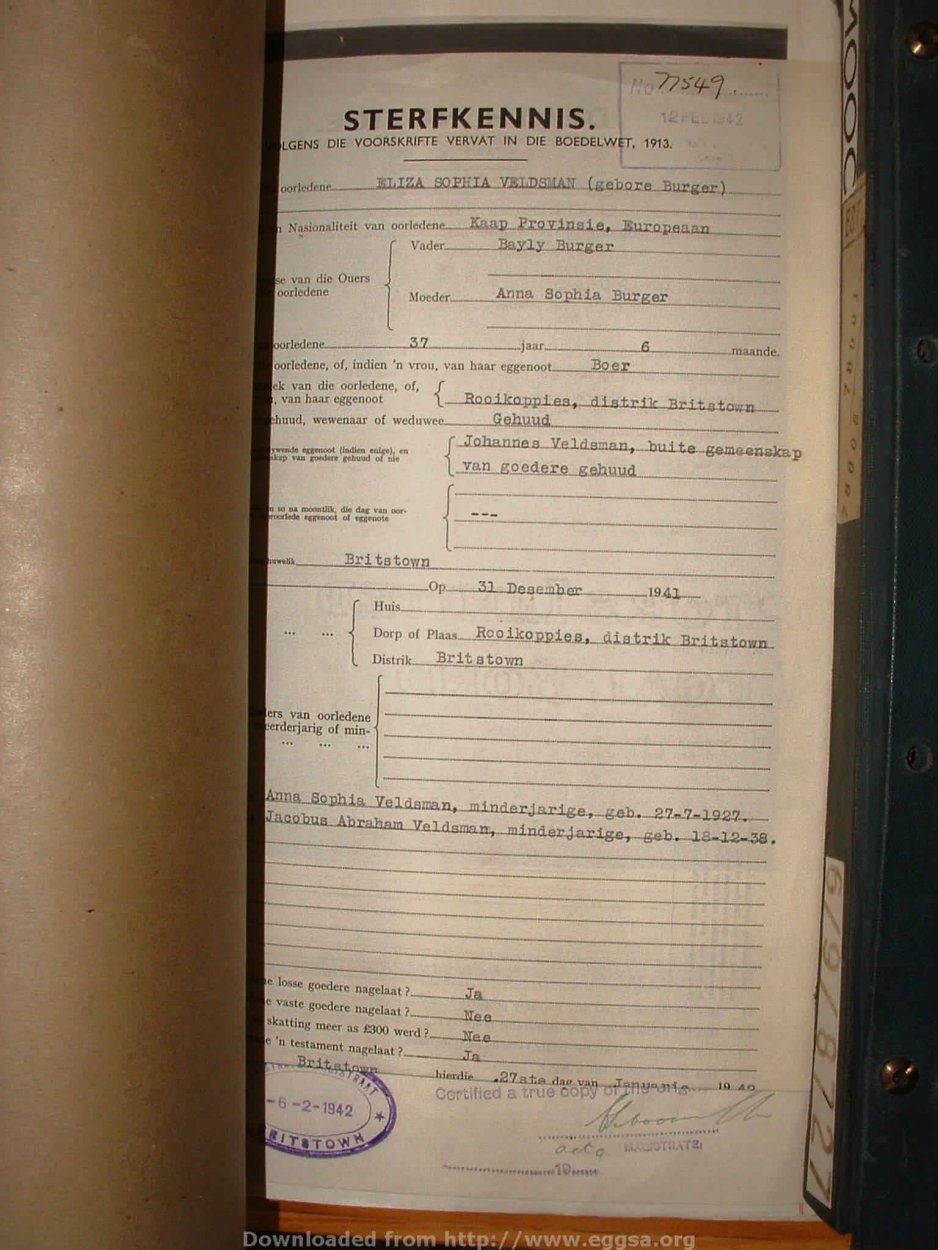 No 77549
12 FEB 1942
STERFKENNIS.
VOLGENS DIE VOORSKRIFTE VERVAT IN DIE BOEDELWET, 1913.
oorledene ELIZA SOPHIA VELDSMAN (gebore Burger)
n Nasionaliteit van oorledene Kaap Provinsie, Europeaan
Vader Bayly Burger
se van die Ouers
oorledene
Moeder Anna Sophia Burger
oorledene 37 jaar 6 maande.
oorledene, of, indien 'n vrou, van haar eggenoot Boer
ek van die oorledene, of,
, van haar eggenoot Rooikoppies, distrik Britstown
ehuud, wewenaar of weduwee Gehuud
ywende eggenoot (indien enige), en Johannes Veldsman, buite gemeenskap
skap van goedere gehuud of nie van goedere gehuud
n so na moontlik, die dag van oor-
eroorlede eggenoot of eggenote ---
huwelik Britstown
Op 31 Desember 1941
Huis
... ... Dorp of Plaas Rooikoppies, distrik Britstown
Distrik Britstown
ders van oorledene
eerderjarig of min-
... ... ...
Anna Sophia Veldsman, minderjarige, geb. 27-7-1927.
Jacobus Abraham Veldsman, minderjarige, geb. 18-12-38.
ne losse goedere nagelaat? Ja
e vaste goedere nagelaat? Nee
skatting meer as £300 werd? Nee
e 'n testament nagelaat? Ja
Britstown hierdie 27ste dag van Januarie 19 42
Certified a true copy of the orig
-6 -2-1942
BRITSTOWN
actg MAGISTRATE
19
MOOC
6/9/8727
Downloaded from http://www.eggsa.org